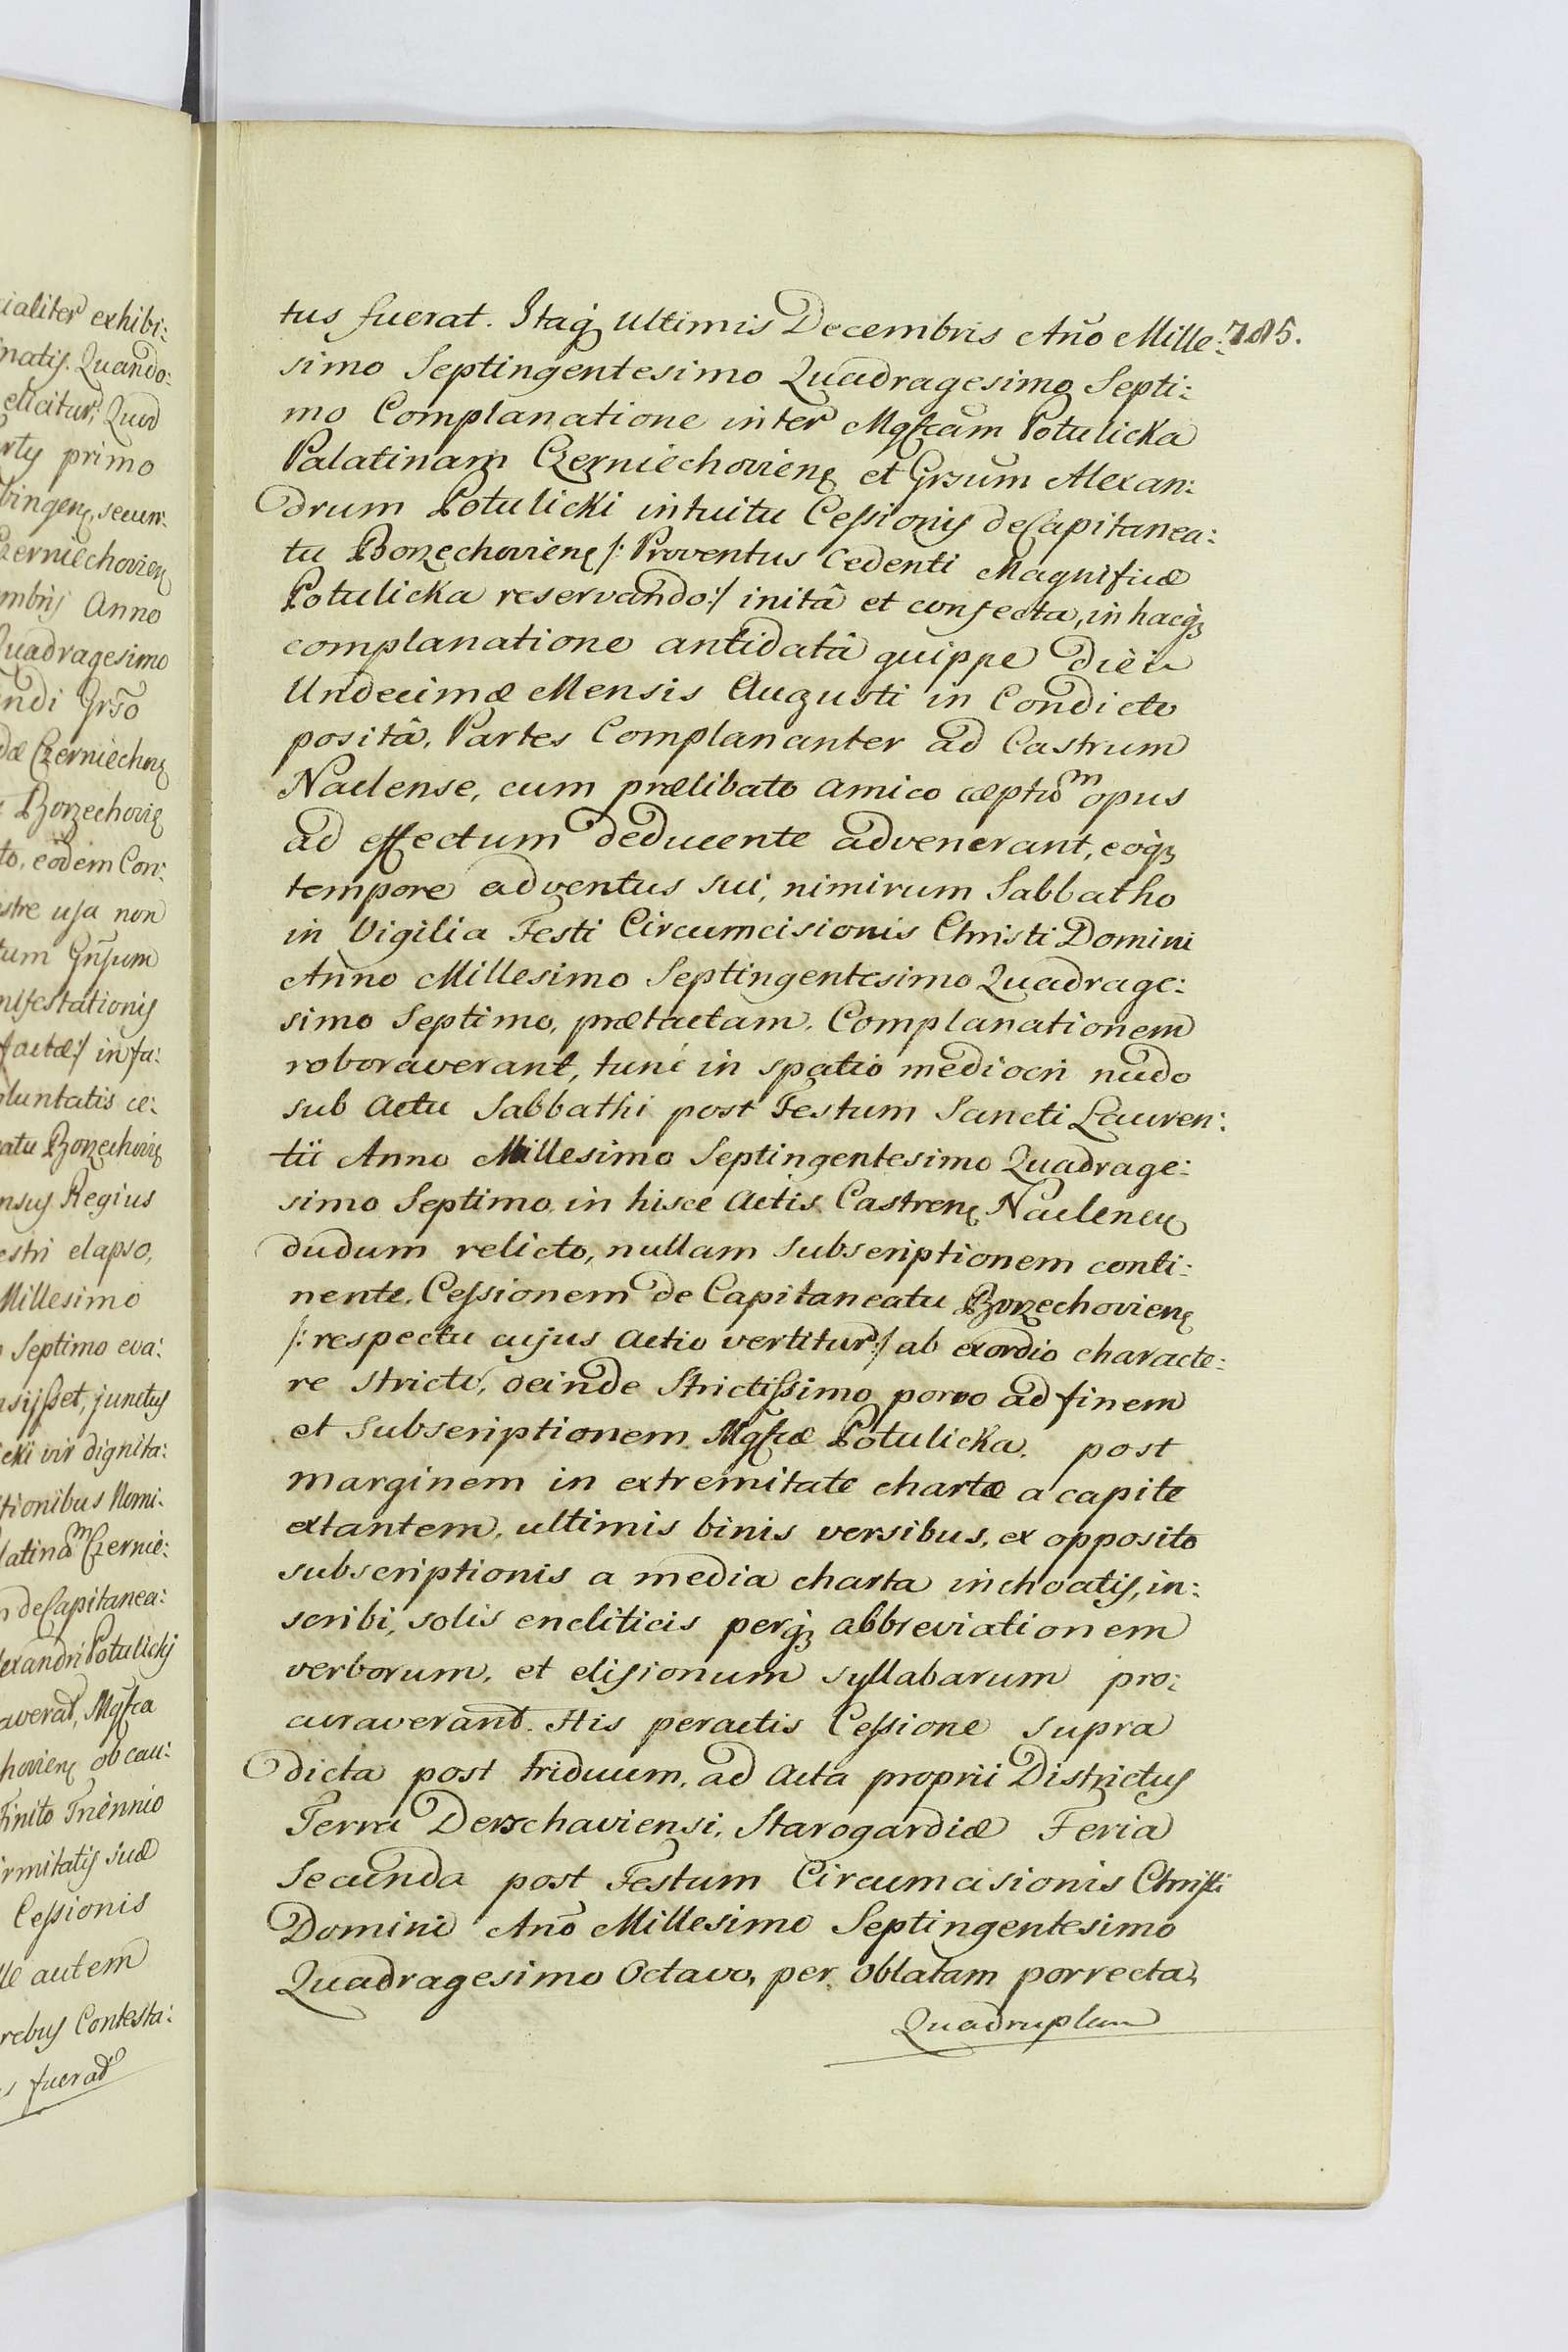 cialiter exhibi:
natis. Quando:
elicitur, Quod
primo
bingen, secun:
Czerniechovien
mbris Anno
Quadragesimo
endi Grso
dæ Czerniechov
Borzechovie
to, eodem Con:
estre usa non
tum Gnsum
nifestationis
factæ:/ in fa:
oluntatis ce:
atu Borzechovie
nsus Regius
estri elapso,
Millesimo
Septimo eva:
nsijsset, junctus
icki vir dignita:
tionibus Nomi:
latinam Czernie:
deCapitanea:
lexandri Potulickj
averat, Mgfca
hovien ob cau:
Finito Triennio
irmitatis suæ
Cessionis
lle autem
rebus Contesta:
s fuerat
785.
tus fuerat. Itaq; ultimis Decembris Ano Mille:
simo Septingentesimo Quadragesimo Septi:
mo Complanatione inter Mgfcam Potulicka
Palatinam Czerniechovien et Grsum Alexan:
drum Potulicki intuitu Cessionis deCapitanea:
tu Borzechovien /: Proventus Cedenti Magnificæ
Potulicka reservando:/ initâ et confecta, in hacq;
complanatione antidatâ quippe diei
Undecimæ Mensis Augusti in Condicto
positâ, Partes Complanantes ad Castrum
Naclense, cum prælibato amico cæptum opus
ad effectum deducente advenerant, eoq;
tempore adventus sui, nimirum Sabbatho
in Vigilia Festi Circumcisionis Christi Domini
Anno Millesimo Septingentesimo Quadrage:
simo Septimo, prætactam Complanationem
roboraverant, tunc in spatio mediocri nudo
sub Actu Sabbathi post Festum Sancti Lauren:
tii Anno Millesimo Septingentesimo Quadrage:
simo Septimo in hisce Actis Castren Naclen
dudum relicto, nullam subscriptionem conti:
nente, Cessionem de Capitaneatu Borzechovien
/: respectu cujus Actio vertitur:/ ab exordio characte:
re stricto, deinde strictissimo porro ad finem
et subscriptionem Mgfcæ Potulicka post
marginem in extremitate chartæ a capite
extantem, ultimis binis versibus, ex opposito
subscriptionis a media charta inchoatis, in:
scribi, solis encliticis perq; abbreviationem
verborum, et elisionum syllabarum pro:
curaverant. His peractis Cessione supra
dicta post triduum, ad Acta proprii Districtus
Terra Derschaviensi, Starogardiæ Feria
Secunda post Festum Circumcisionis Christi
Domini Ano Millesimo Septingentesimo
Quadragesimo Octavo, per oblatam porrecta,
Quadruplum